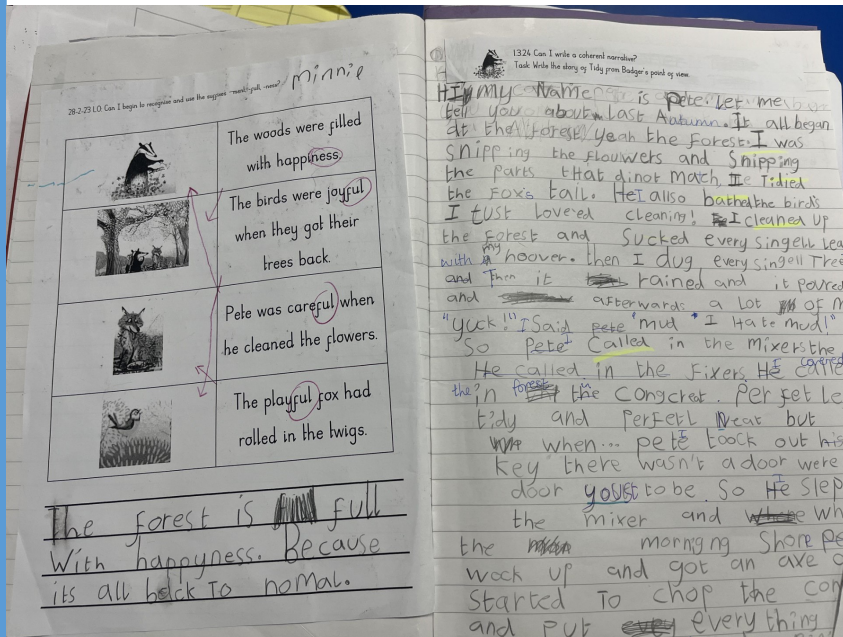 minnie
28-2-23 L.O. Can I begin to recognise and use the suffixes -ment, -full, -ness?
The woods were filled
with happiness.
The birds were joyful
when they got their
trees back.
Pete was careful when
he cleaned the flowers.
The playful fox had
rolled in the twigs.
The forest is full
With happyness. Because
its all back To nomal.
1.3.24 Can I write a coherent narrative?
Task: Write the story of Tidy from Badger's point of view.
HI my Name is pete. Let me
tell you about Last Autumn. It all began
at the forest, yeah the forest. I was
snipping the flouwers and Snipping
the parts tHat dinot match, Tidied
the fox's tail. He I also bathed the birds
I tust lovered cleaning! I cleaned up
the forest and Sucked every singell lea
with my hoover. then I dug every singell Tree
and Then it rained and it poured
and afterwards a lot of m
"yuck!" I Said pete "mud" "I Hate mud!"
So Pete I Called in the mixers the
He called in the fixers He I calle covered
the in forest in the congcreat. Perfet Le
tidy and perfetl Neat but
when... pete I toock out his
key there wasn't a door were
door youst to be. So He I slep
the mixer and wh
the morning Shore Pe
wock up and got an axe
Started To chop the con
and put everything